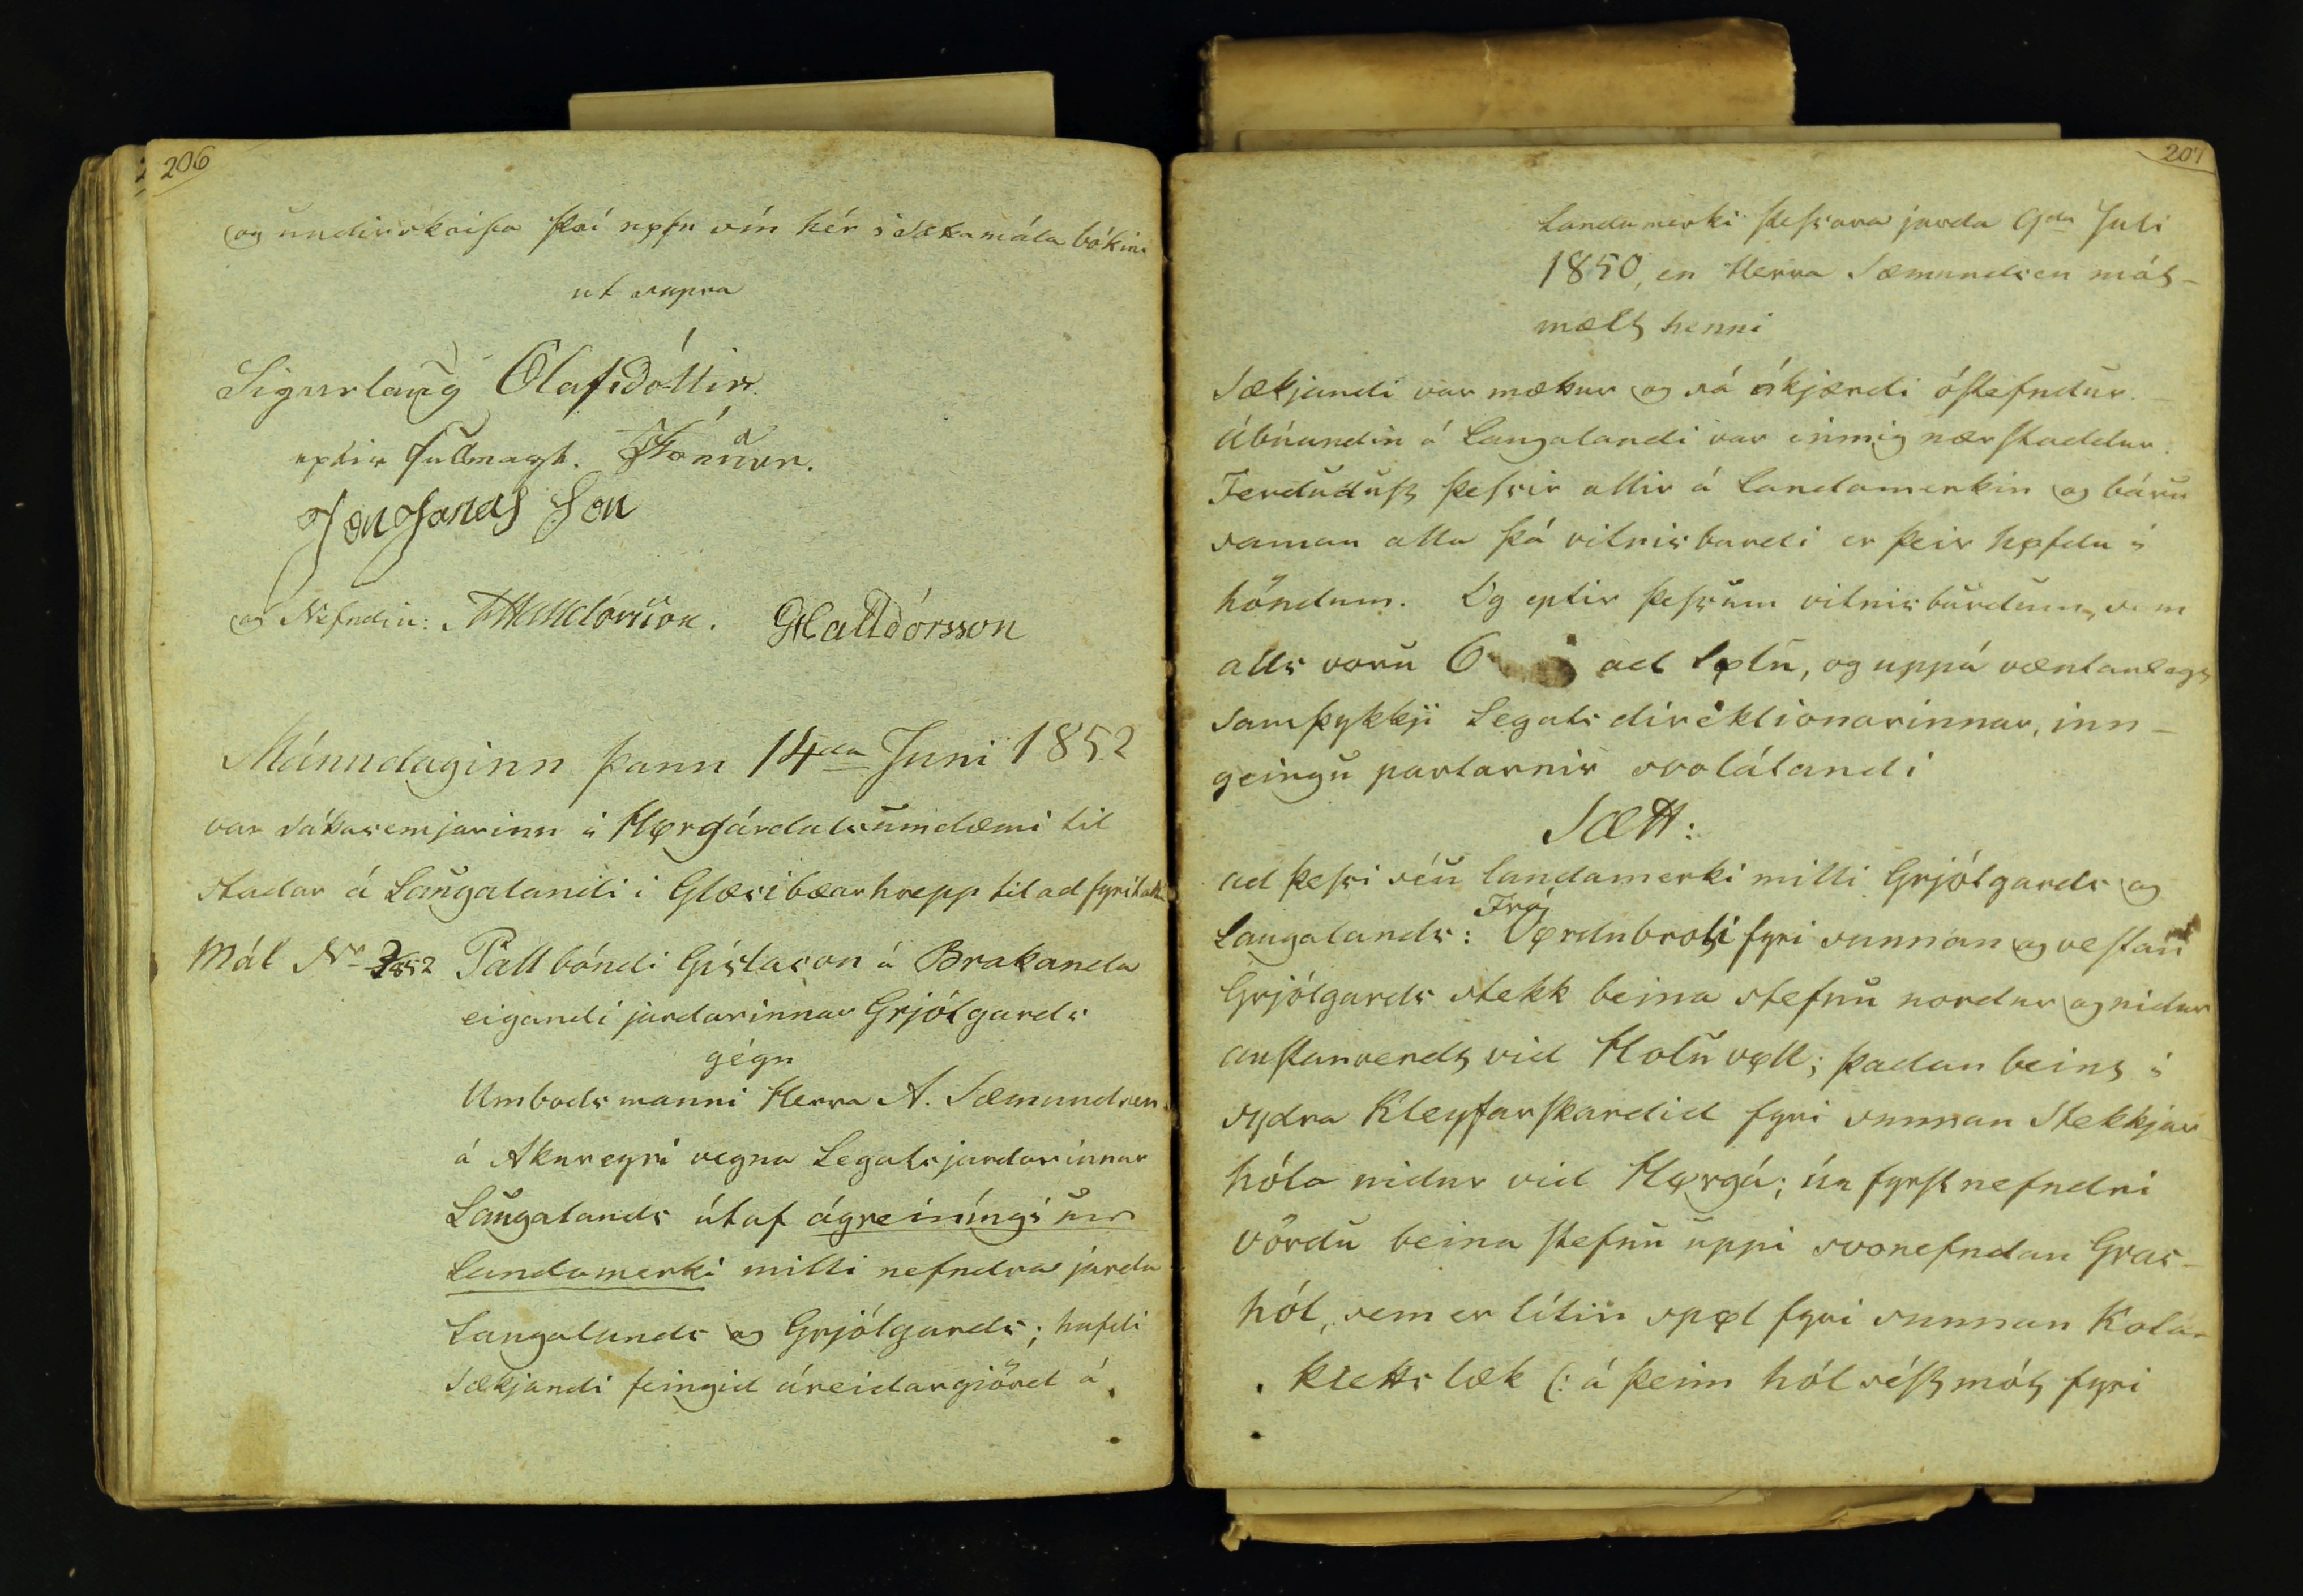 206
og undirskrifa því nøfn sín hér i sáttamála bókina
ut supra
Sigurlaug Olafsdóttir
eptir fullmagt.
Jón Jónas Son
og Nefndin: Halldórsson. GHalldórsson
Mánudaginn þann 14da Juni 1852
var sáttasemjarinn i Hørgárdalsumdæmi til
stadar á Laugalandi i Glæsibæarhrepp til ad fyritaka
Mál No 2/1852 Páll bóndi Gíslason á Brakanda
eigandi jardarinnar Grjótgards
gégn
Umbodsmanni Herra A. Sæmundsen
á Akureyri vegna Legatsjardarinnar
Laugalands útaf ágreiníngi um
Landamerki milli nefndra jarda
Laugalands og Grjótgards; hafdi
Sækjandi feingid áreidargiörd á
207
Landamerki þessara jarda 9da Juli
1850, en Herra Sæmundsen mót-
mælt henni
Sækjandi var mættur og sá ákjærdi óstefndur.
Ábúandin á Laugalandi var einnig nærstaddur.
Ferdudust þessir allir á landamerkin og báru
saman alla þá vitnisburdi er þeir høfdu i
höndum. Og eptir þessum vitnisburdum, sem
alls voru 6 ad tølu, og uppá væntanlegt
samþykkji Legats direktionarinnar, inn-
geingu partarnir svolátandi
Sætt:
ad þessi séu landamerki milli Grjótgards og
Laugalands: Frá Vørdubroti fyri sunnan og vestan
Grjótgards stekk beina stefnu nordur og nidur
austanverdt vid Holu vøll; þadan beint i
sydra Kleyfarskardid fyri sunnan Stekkjar
hóla nidur vid Hørgá; úr fyrst nefndri
vördu beina stefnu uppi svonefndan Gras-
hól, sem er lítin spøl fyri sunnan Kola-
kletts læk (: á þeim hól sést mót fyri